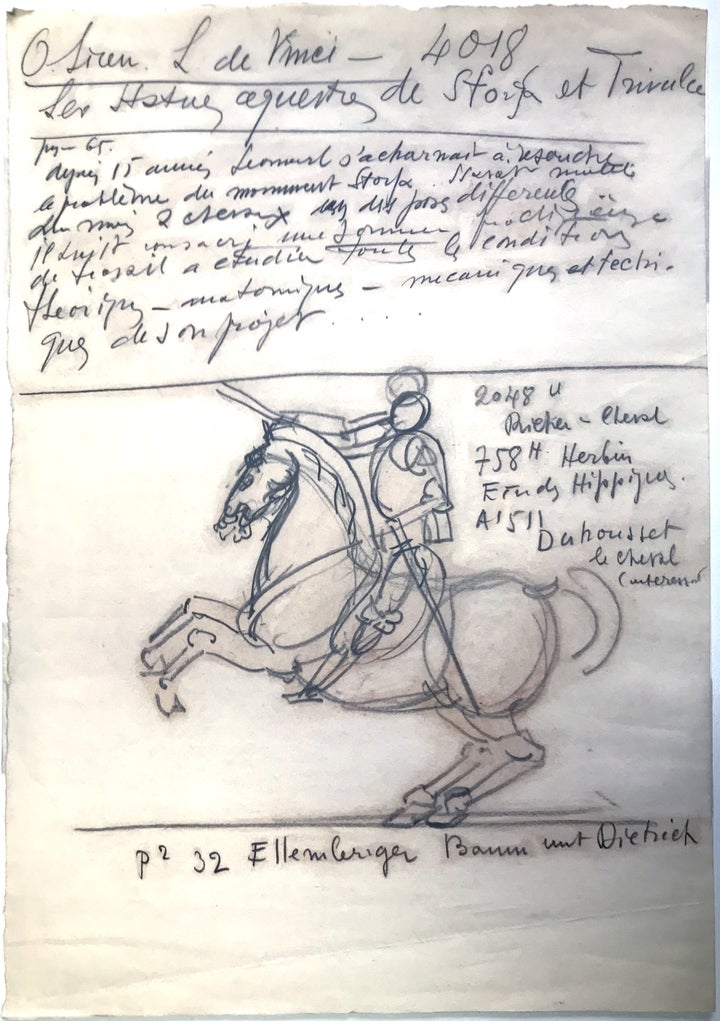 O. Siren. L. de Vinci — 4018
Les Statues equestres de Sforza et Trivulce
pg — 65.
depuis 15 années Leonard s'acharnait à resoudre
le problème du monument Sforza
2 chevaux dans des poses differente
consacré une somme prodigieuse
de travail a etudier toute les conditions
theoriques — anatomiques — mecaniques et techni-
ques de son projet . . . .
2048 H
Richer — Cheval
758 H Herbin
Etudes Hippiques.
A1511
Duhousset
le cheval
(interessant
p² 32 Ellemberiger Baum unt Dietrich